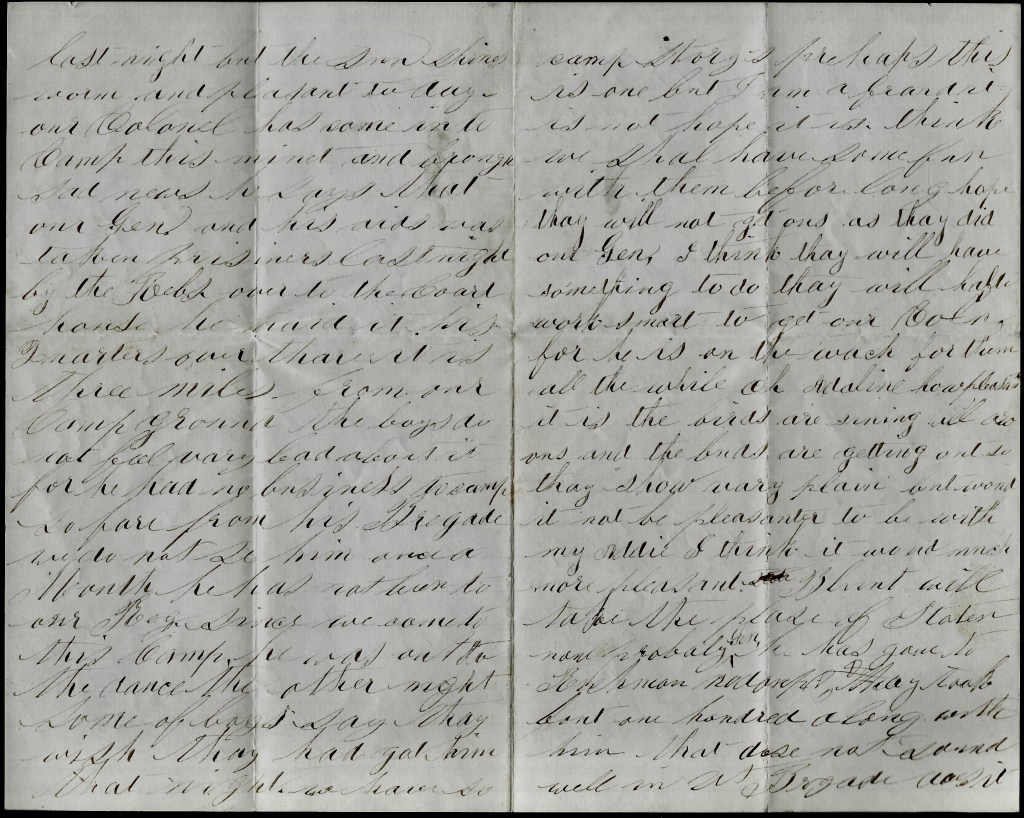 last night but the sun shines
worm and pleasant to day
our Colonel has come in to
Camp this minet and brought
sad news he says that
our Gen, and his aids was
taken prisiners last night
by the Rebs over to the Coart
house he maid it his
Quarters over thare it is
three miles from our
Camp ground the boys do
not feel vary bad about it
for he had no business to camp
so fare from his Bregade
we do not se him once a
Month he has not ben to
our Reg. since we come to
this Camp he was out to
the dance the other night
some of boys say thay
wish thay had got him
that night we have so
camp storys prehaps this
is one but I am a fraid it
is not hope it is think
we shal have some fun
with them beffore long hope
thay will not git ous as thay did
our Gen, I think thay will have
something to do thay will hafto
work smart to get our Coln,
for he is on the wach for them
all the while Oh Adaline how pleasant
it is the birds are sining all arow
ons and the buds are getting out so
thay show vary plain wont woud
it not be pleasanter to be with
my Addie I think it woud much
more pleasant Blunt will
take the place of Stoten
now probaly Gen, he has gone to
Richmon thay took
bout one hundred along with
him that dose not sound
well in 2d Brgade dos it